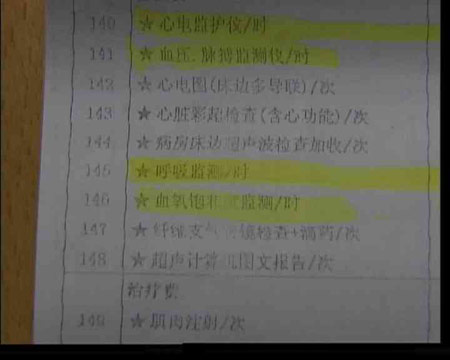 140 ★心电监护仪/时
141 ★血压.脉搏监测仪/时
142 ★心电图(床边多导联)/次
143 ★心脏彩超检查(含心功能)/次
144 ★病房床边超声波检查加收/次
145 ★呼吸监测/时
146 ★血氧饱和度监测/时
147 ★纤维支气管镜检查+滴药/次
148 ★超声计算机图文报告/次
治疗费
149 ★肌肉注射/次